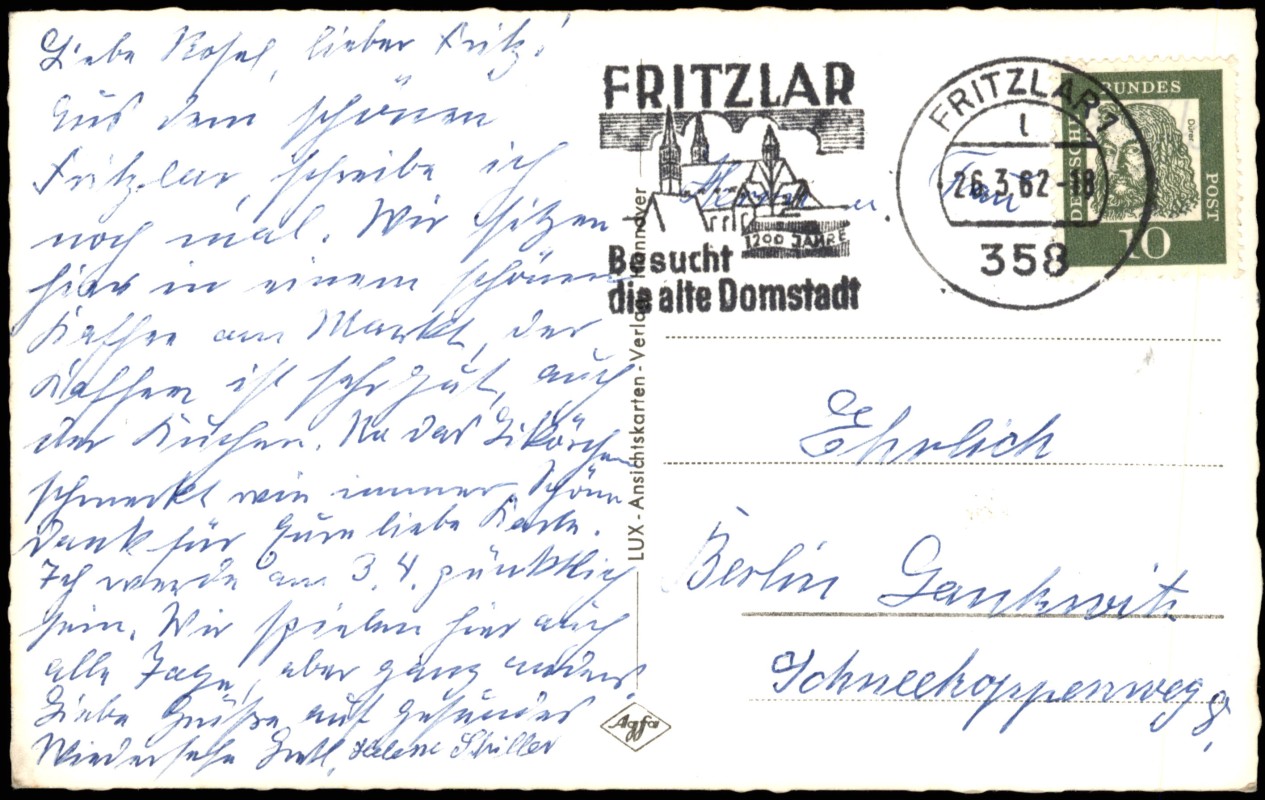 Liebe Rosel, lieber Fritz!
Aus dem schönen
Fritzlar, schreibe ich
noch mal. Wir sitzen
hier in einem schönen
Kaffee am Markt, der
Kaffee ist sehr gut, auch
der Kuchen. Na das Likörchen
schmeckt wie immer. Schönen
Dank für Eure liebe Karte.
Ich werde am 3.4. pünktlich
sein. Wir spielen hier auch
alle Tage, aber ganz anders.
Liebe Grüße auf gesundes
Wiedersehn Helene Schiller
FRITZLAR
1200 JAHRE
Besucht
die alte Domstadt
FRITZLAR 1
26.3.62-18
358
DEUTSCHE BUNDESPOST
Dürer
10
LUX-Ansichtskarten-Verlag Hannover
Agfa
Herrn u. Frau
Ehrlich
Berlin Lankwitz
Schneekoppenweg